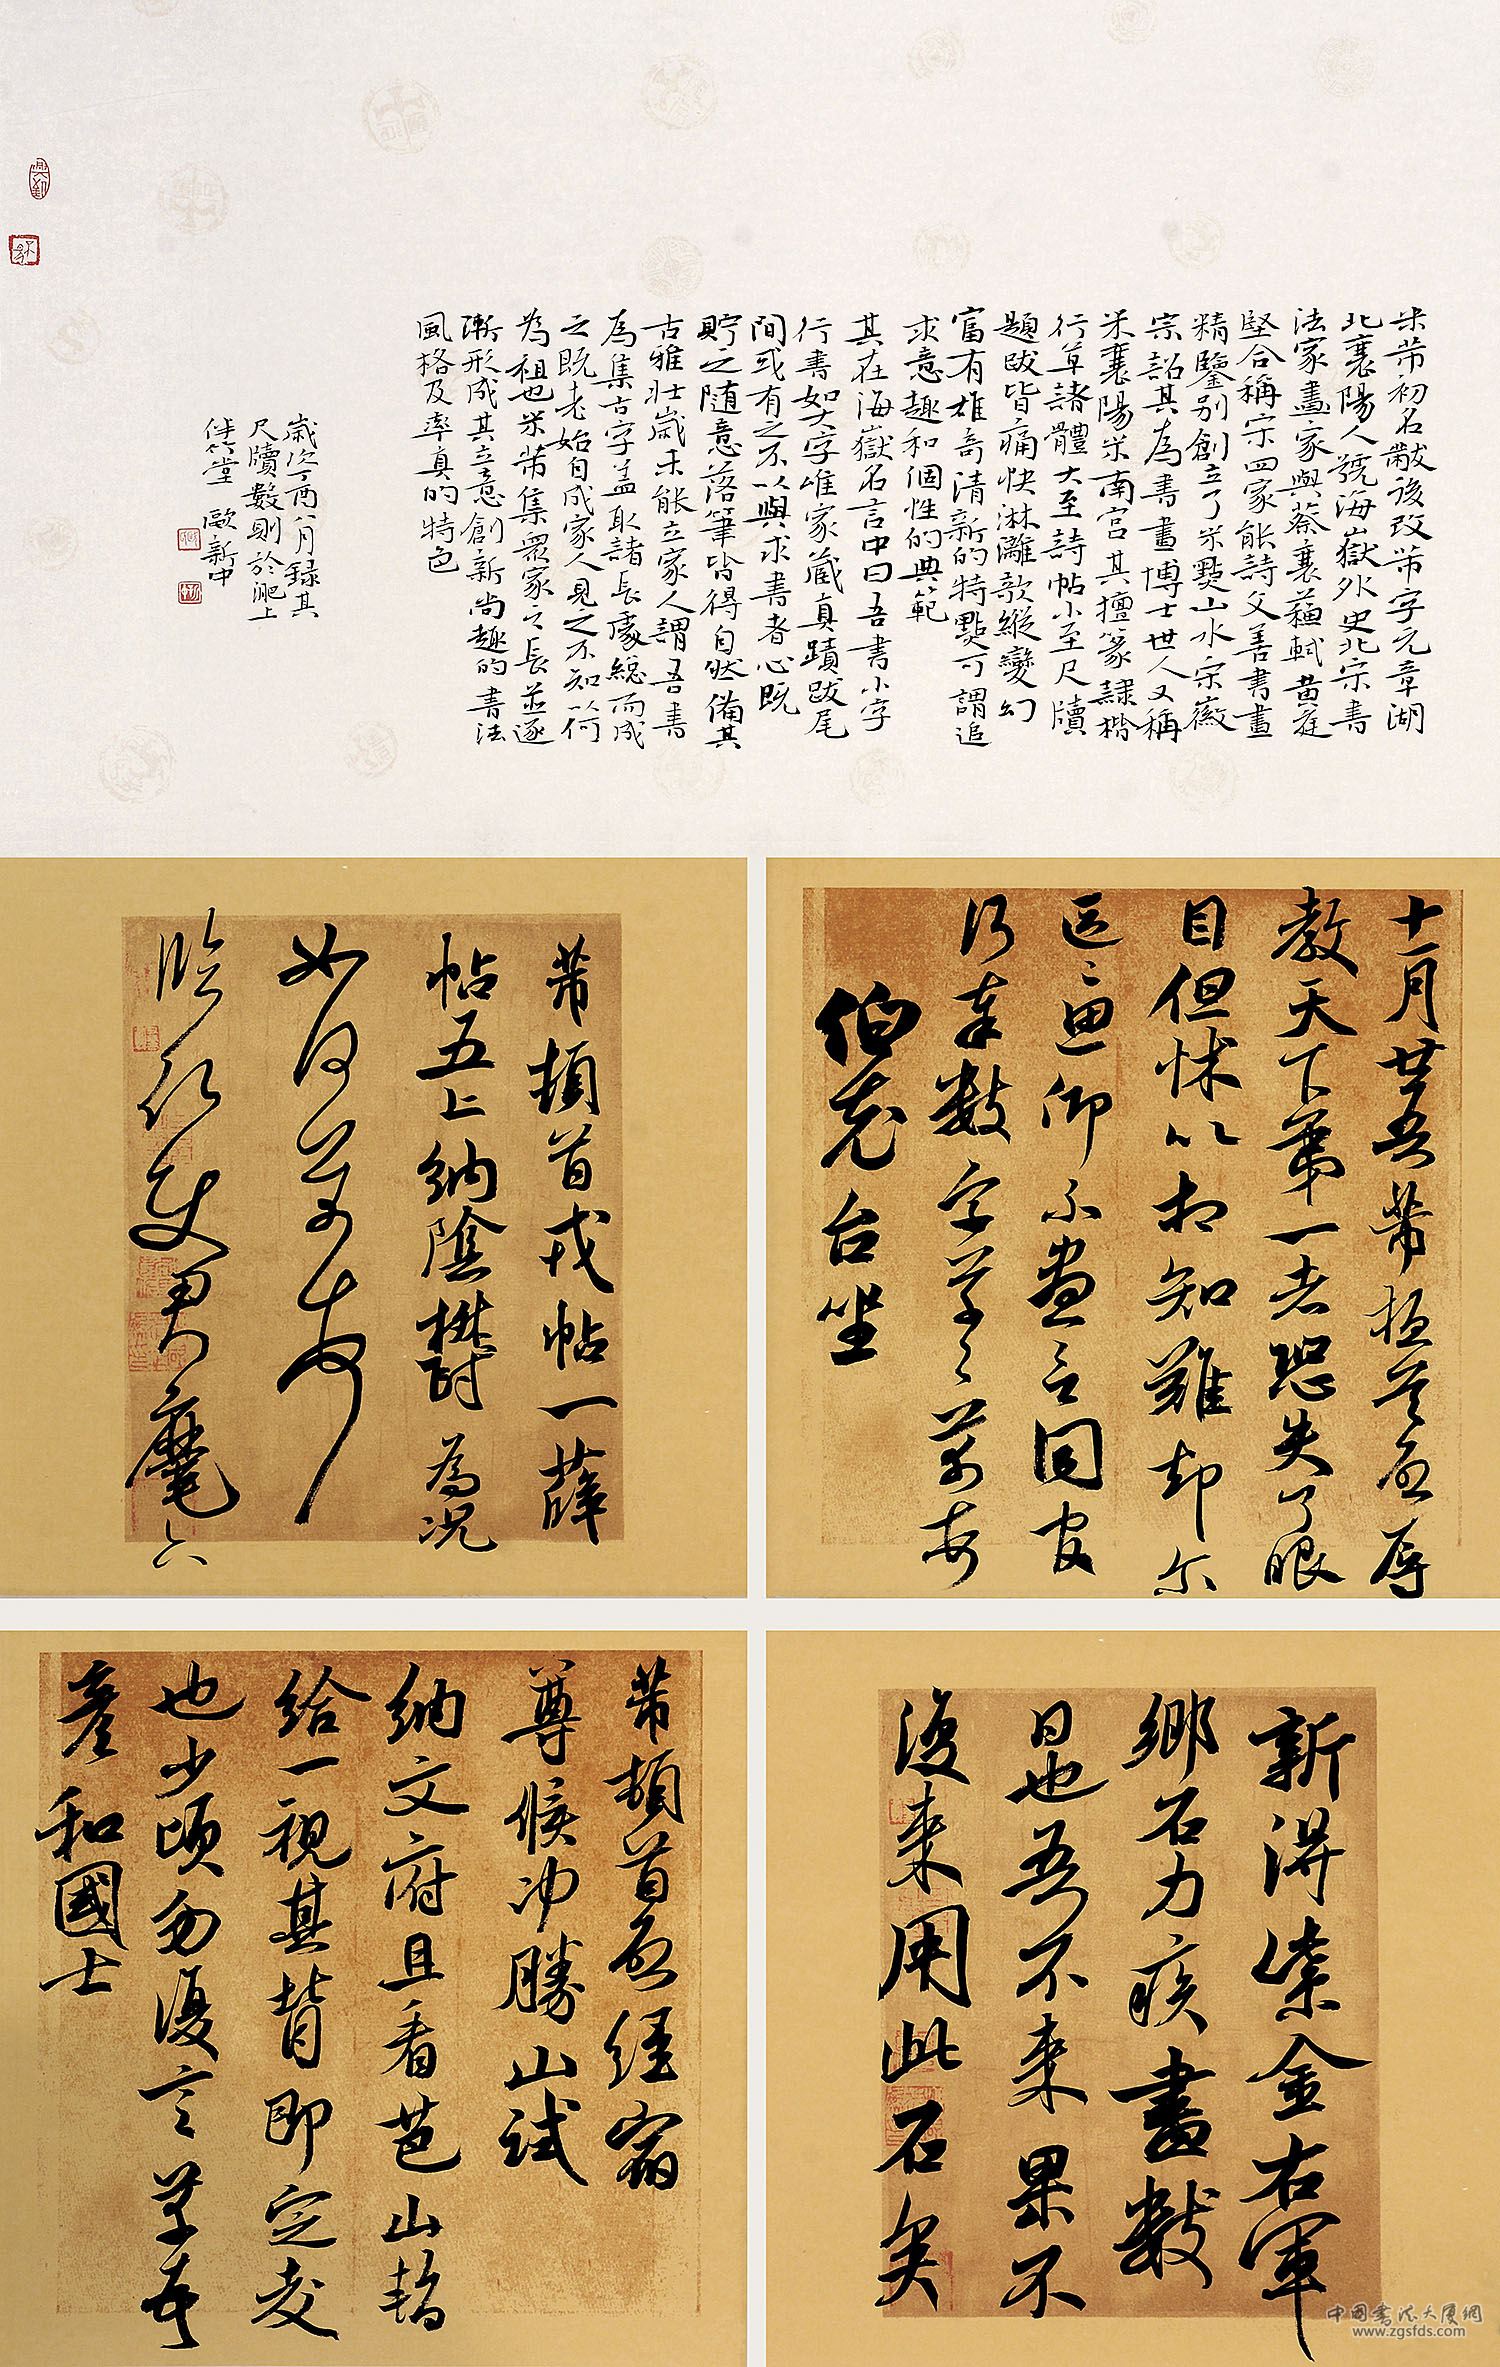 米芾初名黻後改芾字元章湖
北襄陽人號海嶽外史北宋書
法家畫家與蔡襄蘇軾黄庭
堅合稱宋四家能詩文善書畫
精鑒别創立了米點山水宋徽
宗詔其為書畫博士世人又稱
米襄陽米南宫其擅篆隸楷
行草諸體大至詩帖小至尺牘
題跋皆痛快淋灕欹縱變幻
富有雄奇清新的特點可謂追
求意趣和個性的典範
其在海嶽名言中曰吾書小字
行書如大字唯家藏真蹟跋尾
間或有之不以與求書者心既
貯之随意落筆皆得自然備其
古雅壮歲未能立家人謂吾書
為集古字盖取諸長處總而成
之既老始自成家人見之不知以何
為祖也米芾集眾家之長並逐
漸形成其立意創新尚趣的書法
風格及率真的特色
歲次丁酉八月録其
尺牘數則於淝上
伴竹堂 歐新中
十一月廿五日芾樞首啓辱
教天下第一者恐失了眼
目但怵以相知難却尔
區區思仰不盡言同官
行奉數字草草芾頓首
伯充台坐
芾頓首戎帖一薛
帖五上納陰鬱為況
如何芾頓首
臨行使君麾下
新得紫金右軍
鄉石力疾書數
日也吾不来果不
復来用此石矣
芾頓首啓經宿
尊候冲勝山試
納文府且看芭山暫
給一視其背即定交
也少頃勿復言芾頓首
彦和國士
中国書法大厦網
www.zgsfds.com